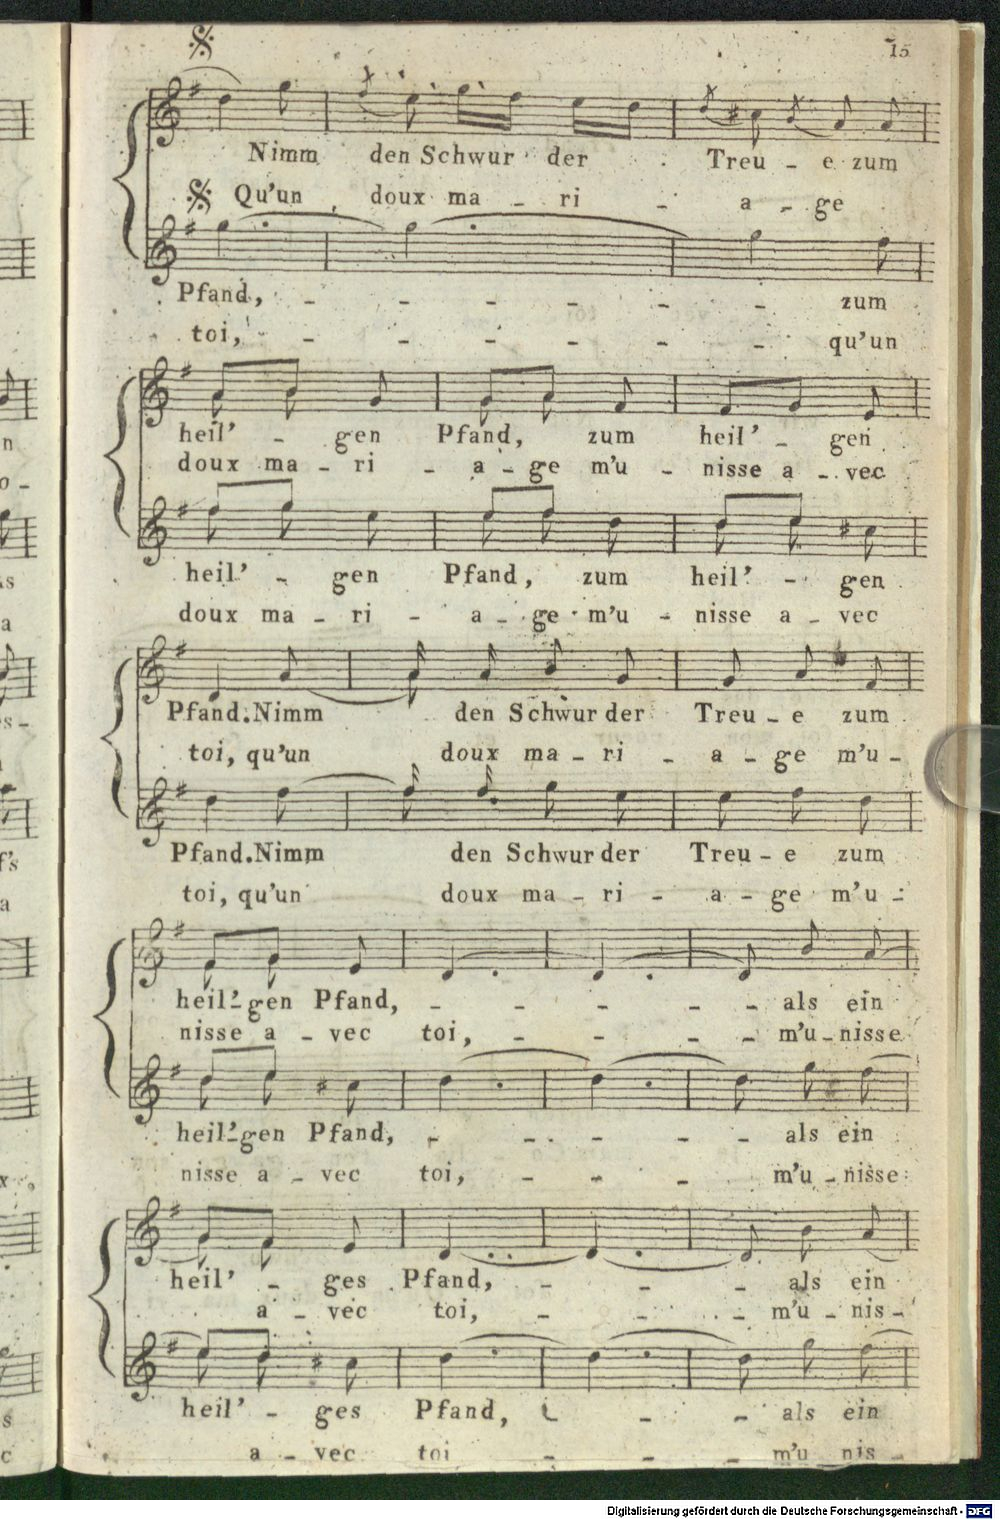 15
Nimm den Schwur der Treu - e zum
Qu'un doux ma - ri - a - ge
Pfand, - - - - - - zum
toi, - - - - - - qu'un
heil' - gen Pfand, zum heil' - gen
doux ma - ri - a - ge m'u - nisse a - vec
heil' - gen Pfand, zum heil' - gen
doux ma - ri - a - ge m'u - nisse a - vec
Pfand. Nimm den Schwur der Treu - e zum
toi, qu'un doux ma - ri - a - ge m'u -
Pfand. Nimm den Schwur der Treu - e zum
toi, qu'un doux ma - ri - a - ge m'u -
heil'- gen Pfand, - - - - - als ein
nisse a - vec toi, - - - - m'u - nisse
heil'- gen Pfand, - - - - - als ein
nisse a - vec toi, - - - m'u - nisse
heil' - ges Pfand, - - - als ein
a - vec toi, - - - - m'u - nis -
heil' - ges Pfand, - - - als ein
a - vec toi - - - m'u nis -
Digitalisierung gefördert durch die Deutsche Forschungsgemeinschaft - DFG